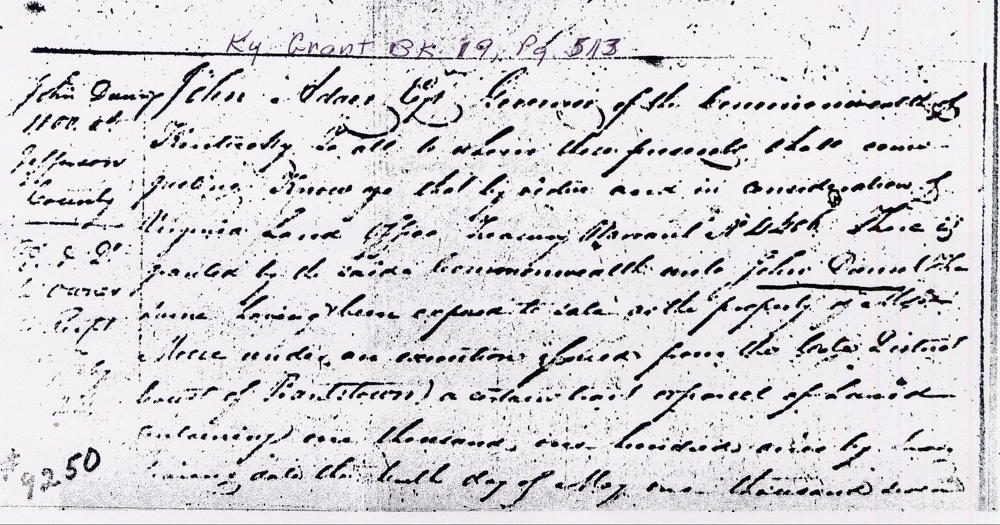 Ky. Grant Bk 19, Pg. 513
John
1100 ad
Jefferson
County
$9250
John Adair Esqr Governor of the Commonwealth of
Kentucky To all to whom these presents shall come
greeting Know ye that by virtue and in consideration of
Virginia Land Office Treasury Warrant There is
granted by the said Commonwealth unto John the
same having been exposed to sale as the property of
under an execution issued from the late District
Court of Beardstown) a certain tract or parcel of Land
containing one thousand one hundred acres by
date the tenth day of May one thousand seven